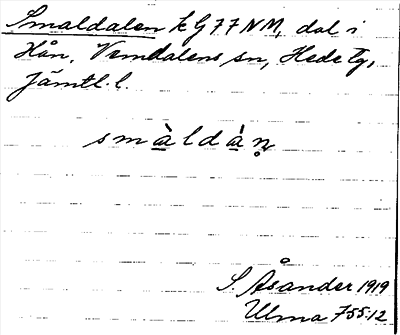 Smaldalen k G77NM, dal i
Hån, Vemdalens sn, Hede tg,
Jämtl. l.
smàldàṇ
S. Åsander 1919
Ulma 755:12